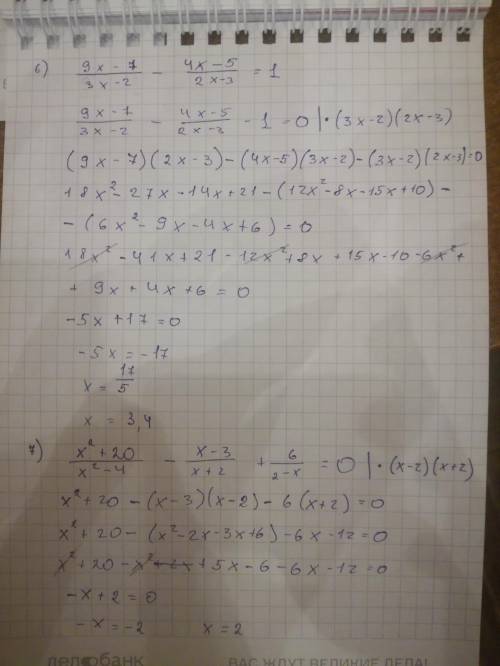 6) (9x-7)/(3x-2) - (4x-5)/(2x-3) = 1
(9x-7)/(3x-2) - (4x-5)/(2x-3) - 1 = 0 |·(3x-2)(2x-3)
(9x-7)(2x-3)-(4x-5)(3x-2)-(3x-2)(2x-3)=0
18x²-27x-14x+21-(12x²-8x-15x+10)-
-(6x²-9x-4x+6)=0
18x²-41x+21-12x²+8x+15x-10-6x²+
+9x+4x+6=0
-5x+17=0
-5x=-17
x=17/5
x = 3,4
7) (x²+20)/(x²-4) - (x-3)/(x+2) + 6/(2-x) = 0 |·(x-2)(x+2)
x²+20-(x-3)(x-2)-6(x+2)=0
x²+20-(x²-2x-3x+6)-6x-12=0
x²+20-x²+2x+5x-6-6x-12=0
-x+2=0
-x=-2 x=2
делобанк
ВАС ЖДУТ ВЕЛИКИЕ ДЕЛА!